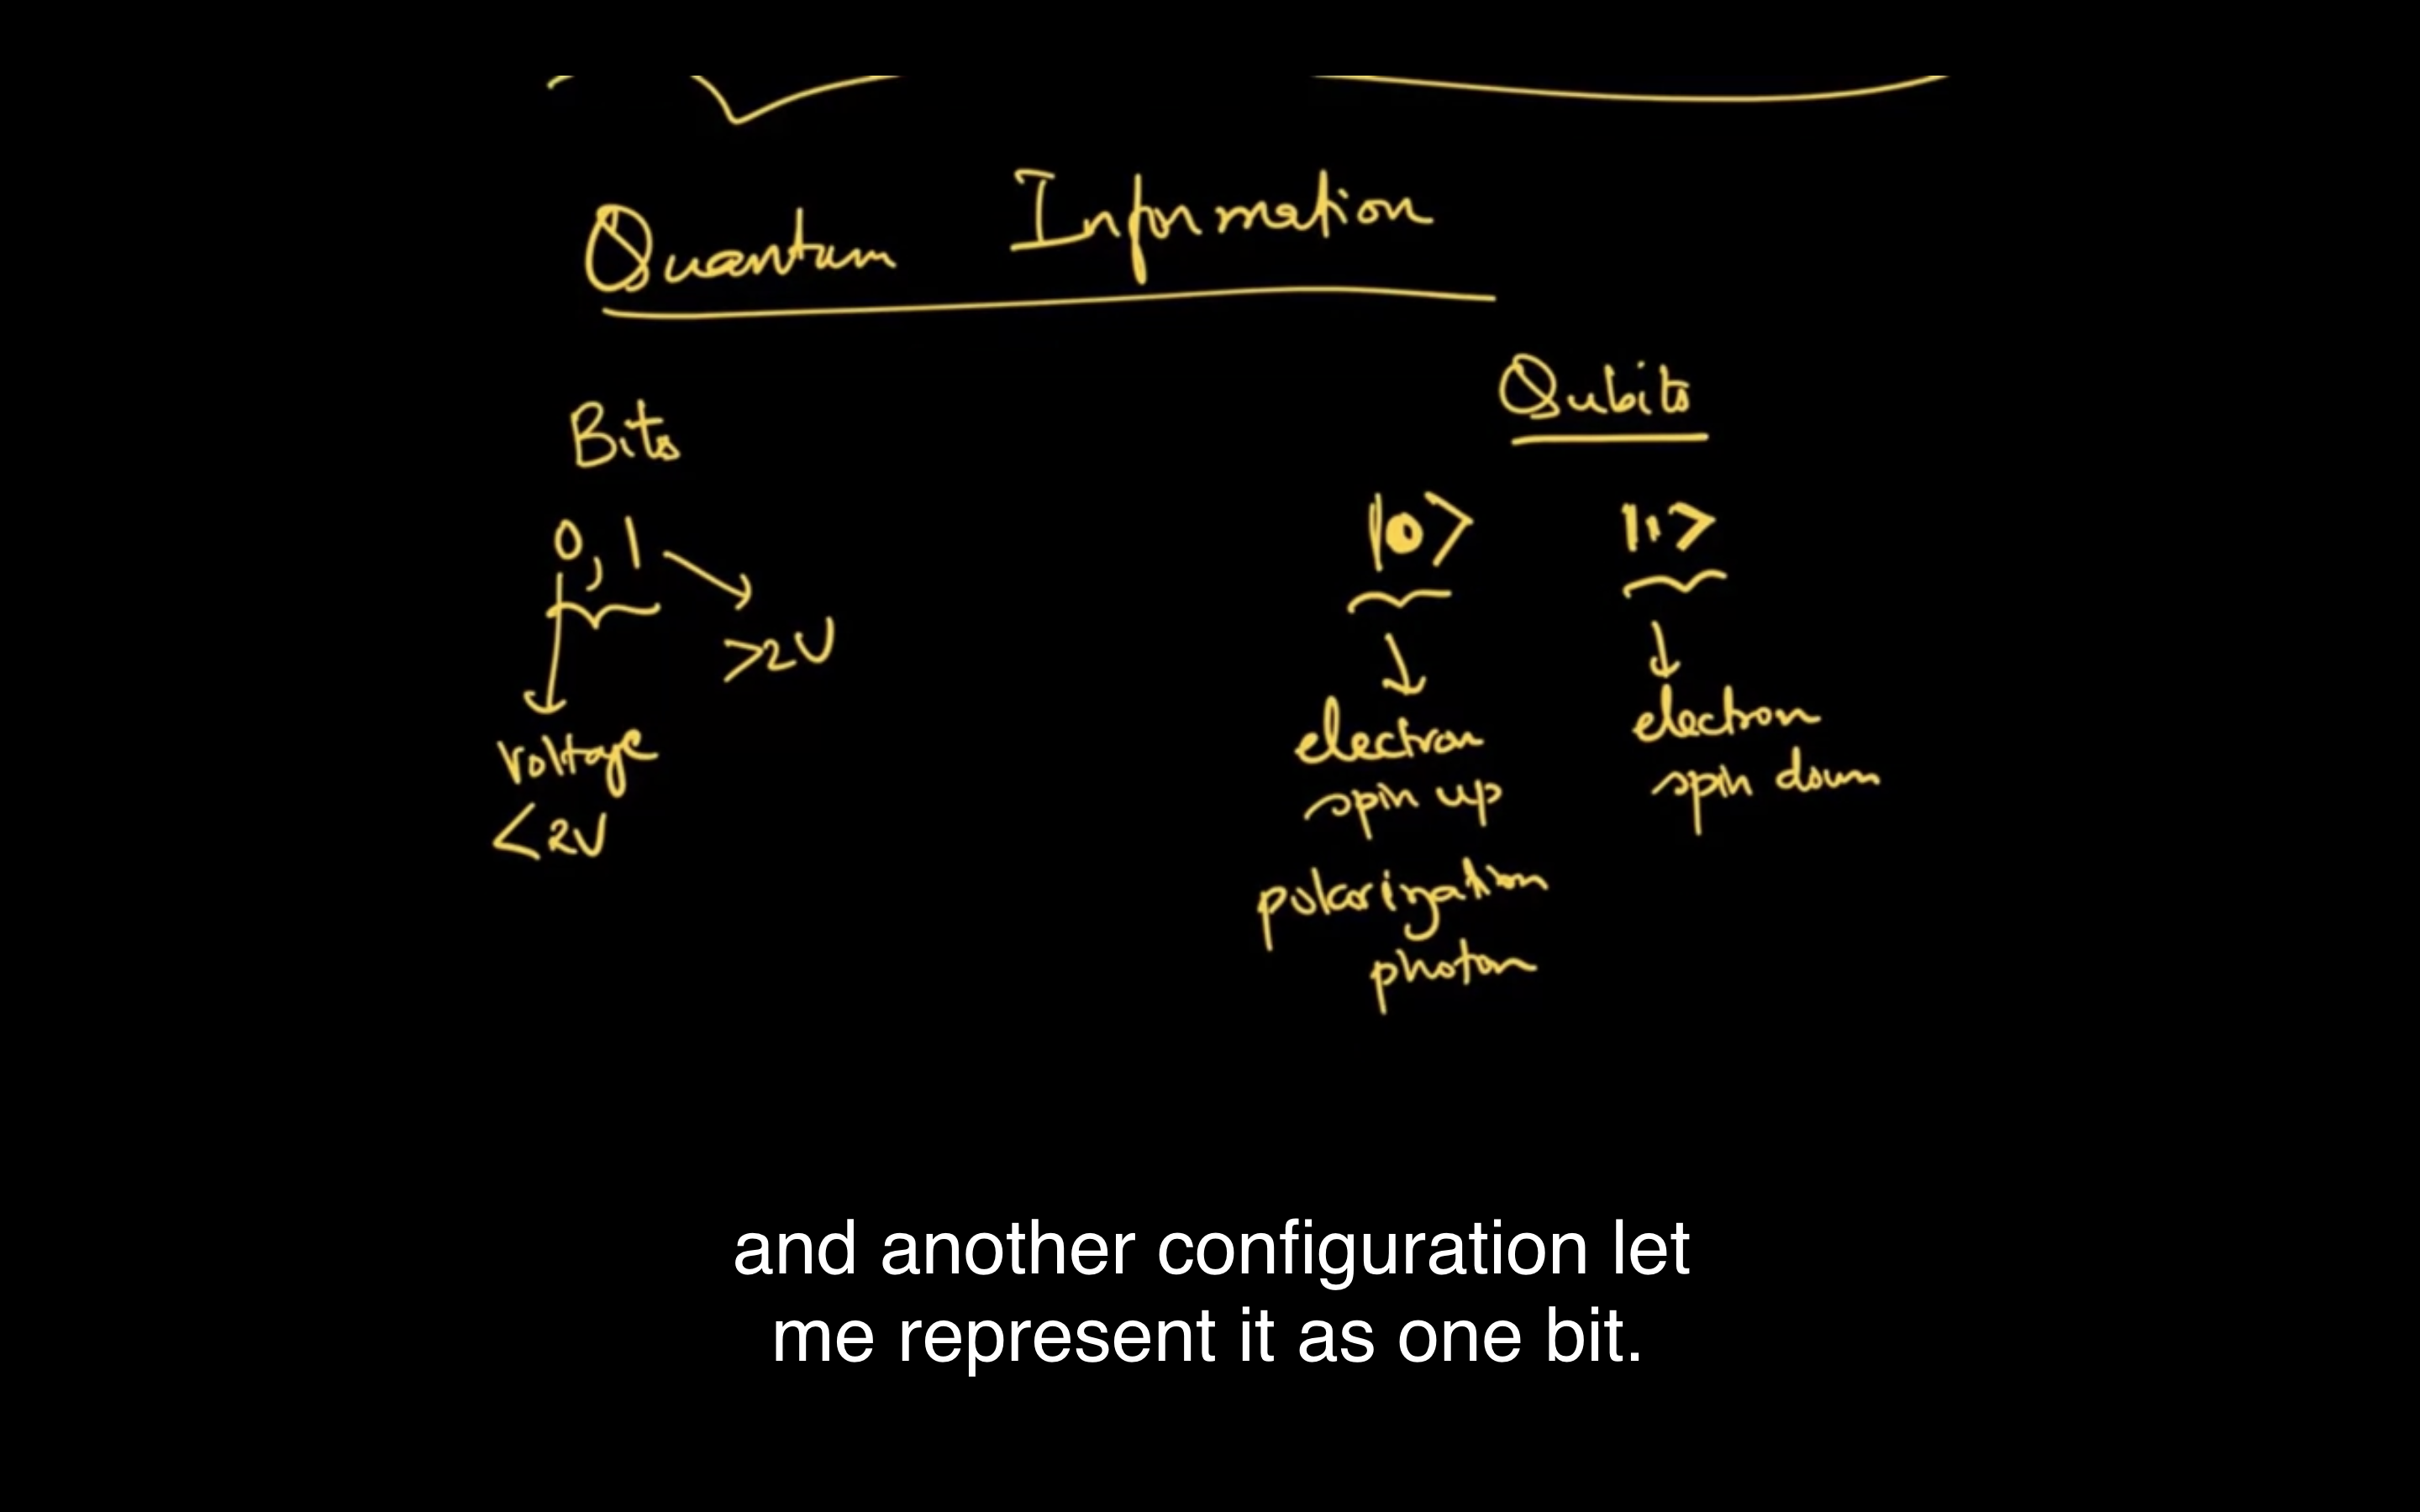 Quantum Information
Bits
0, 1
>2V
voltage
<2V
Qubits
|0> |1>
electron
spin up
polarization
photon
electron
spin down
and another configuration let
me represent it as one bit.